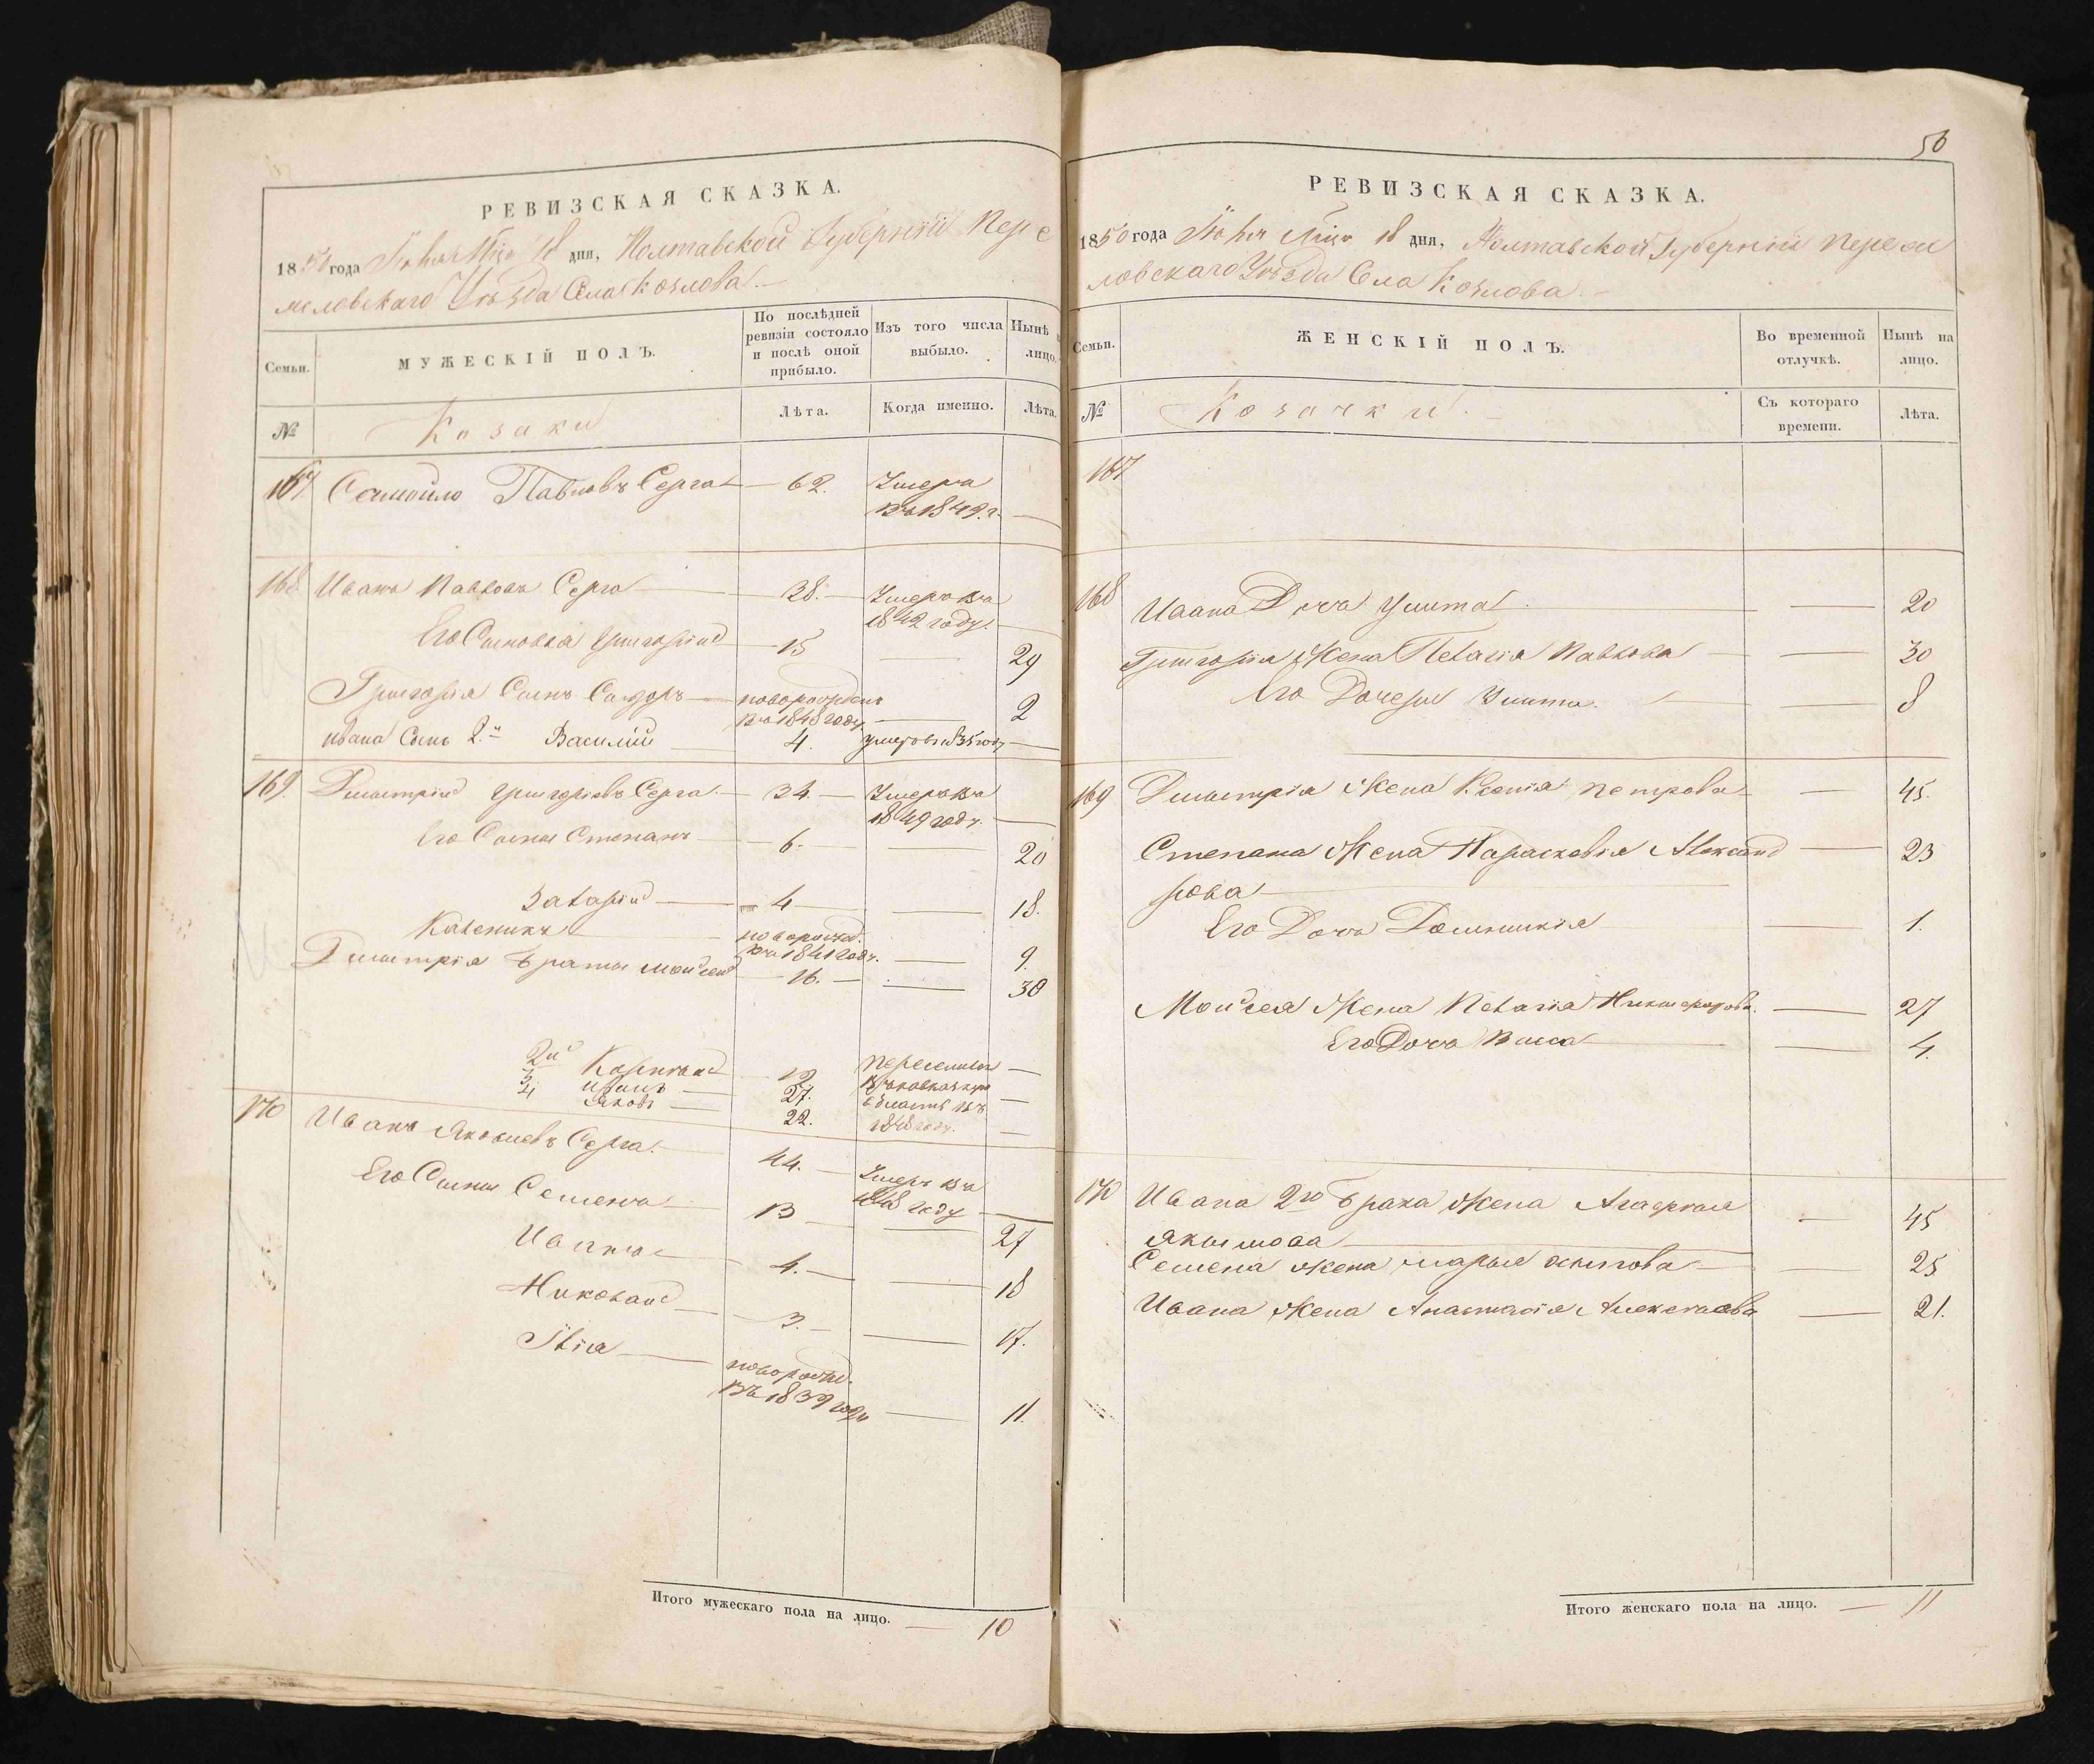 РЕВИЗСКАЯ СКАЗКА.
1850 года Іюня Мца 18 дня, Полтавской Губерніи Пере
яславскаго Уѣзда Села Козлова
Семьи.
МУЖЕСКІЙ ПОЛЪ.
По послѣдней ревизіи состояло и послѣ оной прибыло.
Изъ того числа выбыло.
Нынѣ лицо.
№
Козаки
Лѣта.
Когда именно.
Лѣта.
167 Самойло Павловъ Серга 62. Умеръ
въ 1849. г.
168 Иванъ Павловъ Серга 38. Умеръ въ
1842 году.
Его Сыновья Григорій 15 29
Григорія Сынъ новорожденъ
въ 1848 году 2
Ивана Сынъ 2й Василій 4. умеръ въ 1835 году
169. Дмытрій Григоріевъ Серга 34. Умеръ въ
1849 году.
Его Сыны Степанъ 6. 20
Захарій 4 18.
Каленикъ новорожд.
въ 1841 году. 9.
Дмытрія Браты Мойсей 16. 30
2й 19 Переселились
3 Иванъ 27. въ Кавказкую
4 Яковъ 22. область въ
1848 году.
170 Иванъ Яковлевъ Серга. 44. Умеръ въ
1848 году
Его Сыны Семенъ 13 27
Иванъ 4. 18
Николай 3. 17.
Илія новорожд.
въ 1839 году 11.
Итого мужескаго пола на лицо. 10
56
РЕВИЗСКАЯ СКАЗКА.
1850 года Іюня Мца 18 дня, Полтавской Губерніи Переяс
лавскаго Уѣзда Села Козлова
Семьи.
ЖЕНСКІЙ ПОЛЪ.
Во временной отлучкѣ.
Нынѣ на лицо.
№
Козачки
Съ котораго времени.
Лѣта.
167
168 Ивана Дочь Улита 20
Григорія Жена Пелагія Павлова 30
Его Дочери Улита. 8
169 Дмытрія Жена Ксенія Петрова 45.
Степана Жена Парасковія Александ 23
рова
Его Дочь Домникія 1.
Мойсея Жена Пелагія Никифорова. 27
Его Дочь Васса 4.
170 Ивана 2го Брака Жена Агафія 45
Якымова
Семена Жена Марья Осипова 25
Ивана Жена Анастасія Алексѣева 21.
Итого женскаго пола на лицо. 11